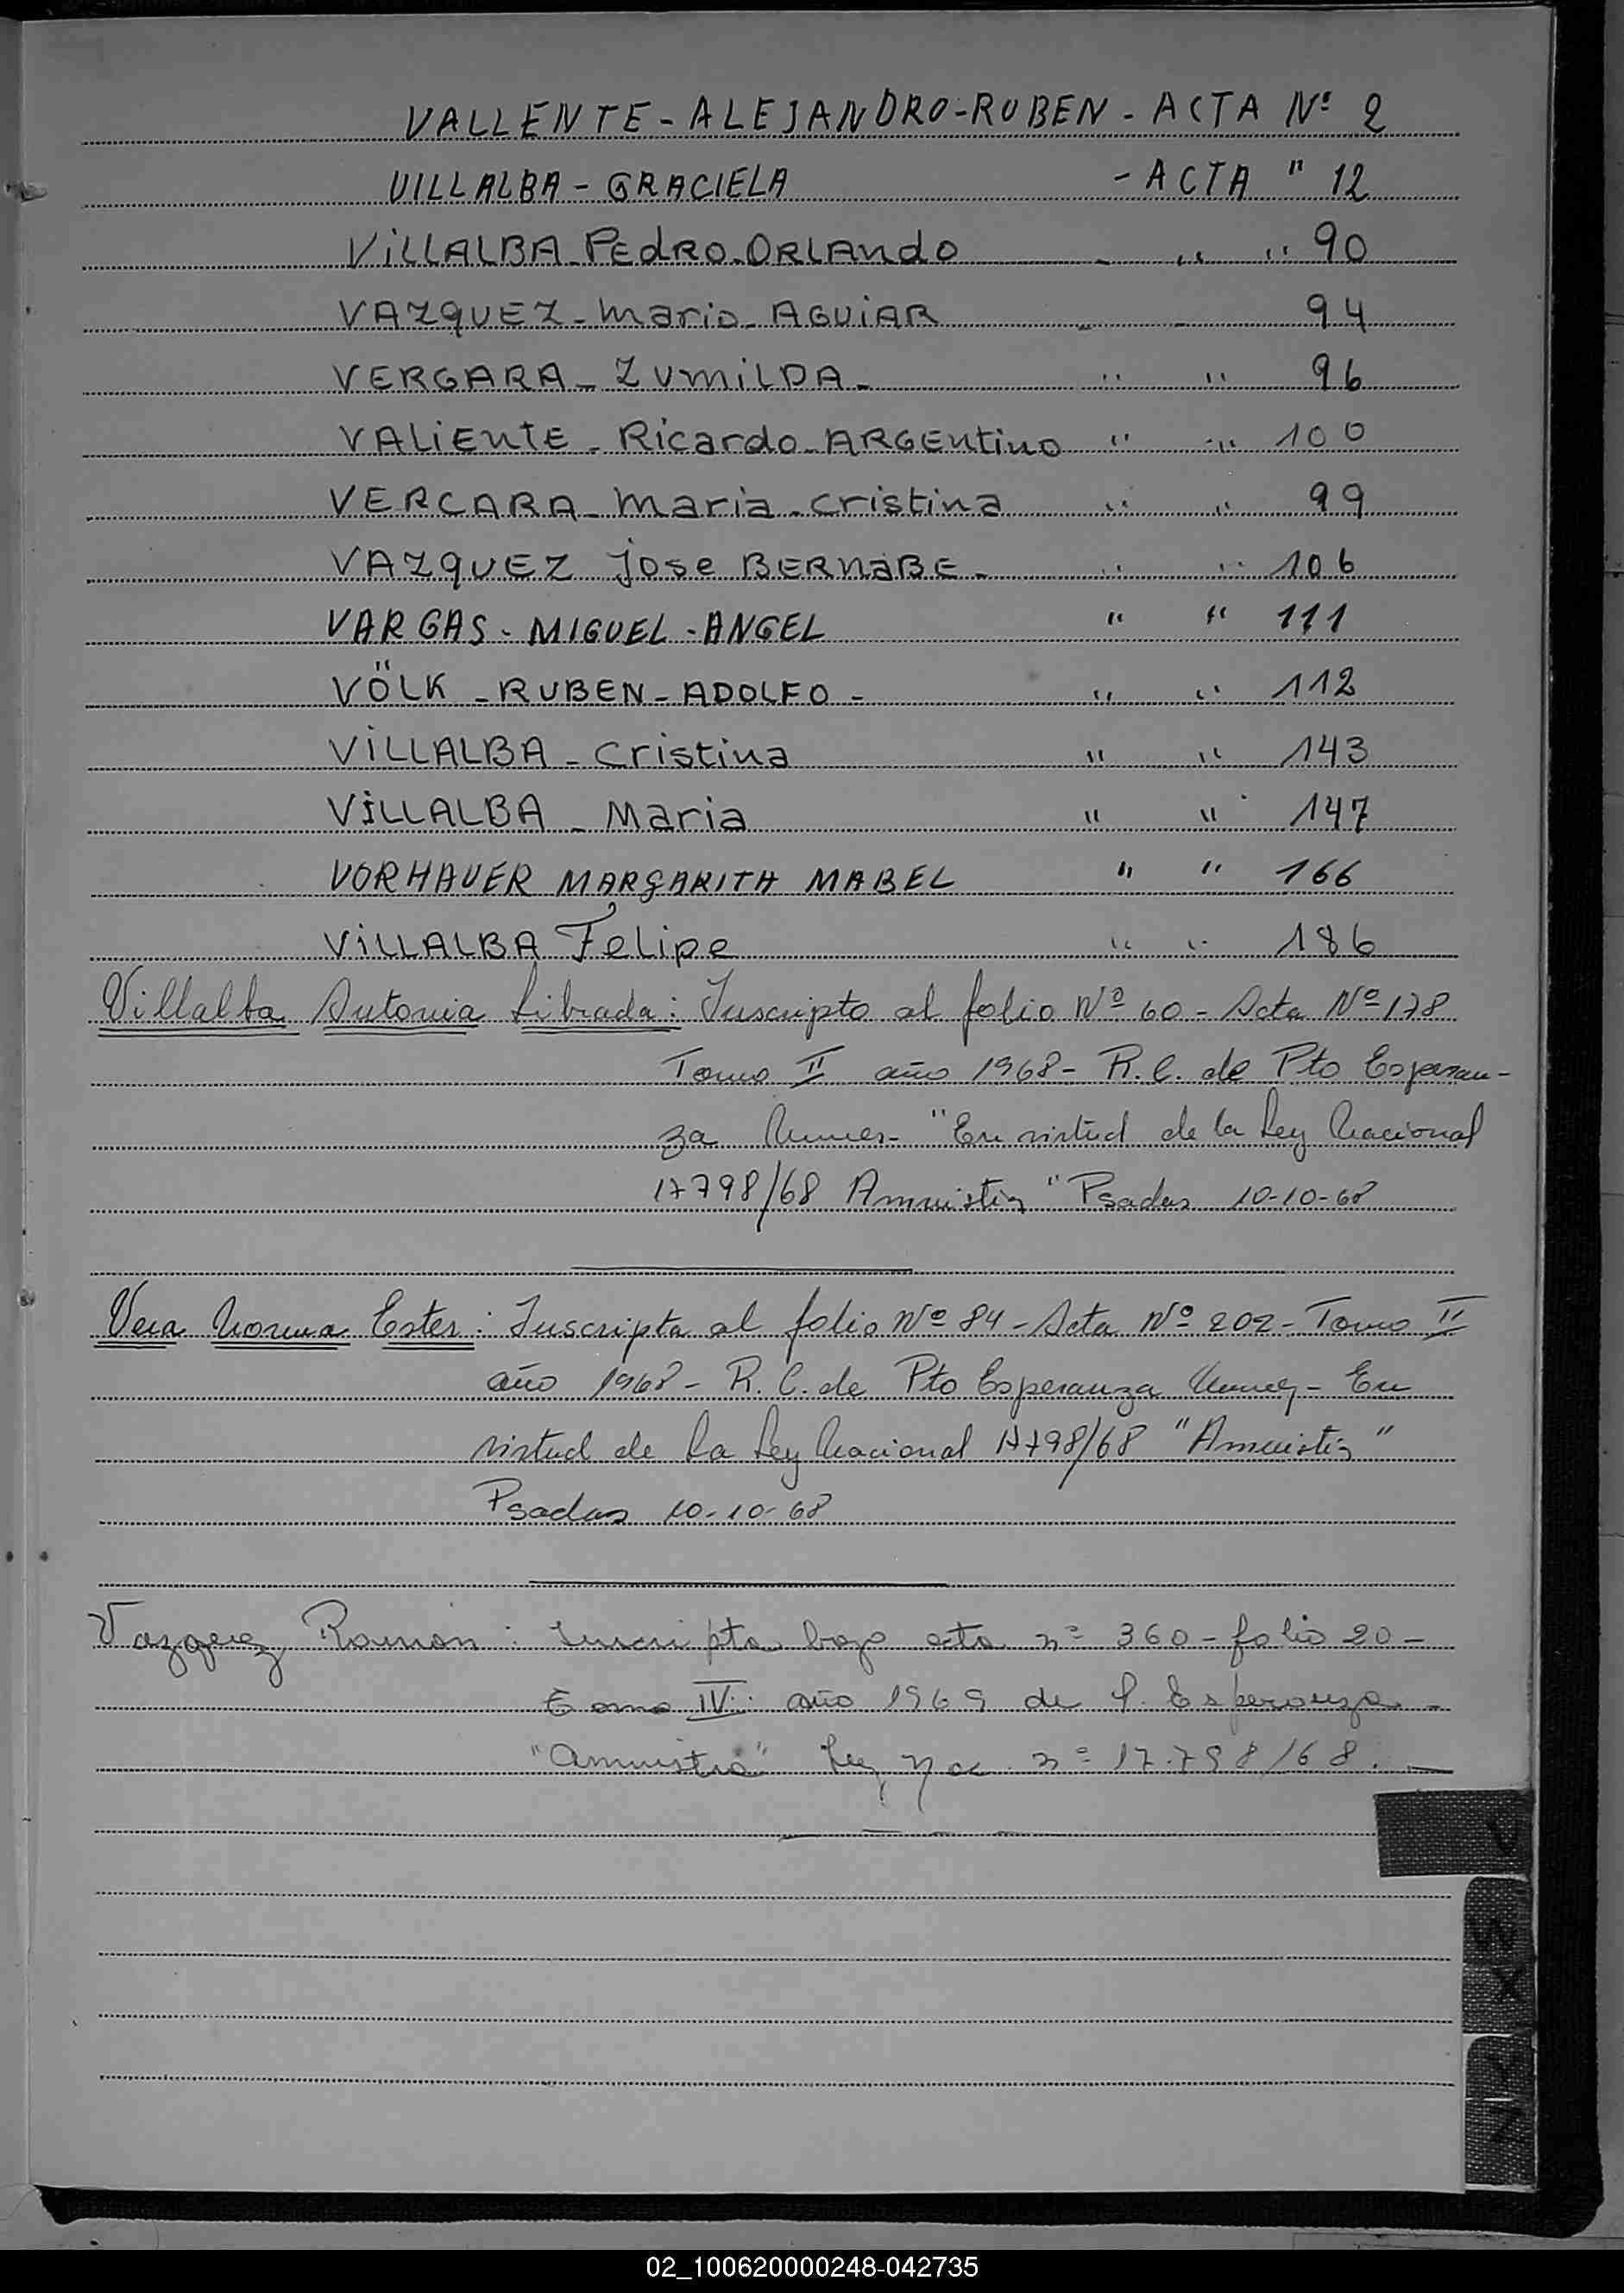 VALLENTE - ALEJANDRO - RUBEN - ACTA Nº 2
VILLALBA - GRACIELA - ACTA " 12
ViLLALBA - PEdRO - ORLANdO - " " 90
VAZQUEZ - Mario - AGUiAR - - 94
VERGARA - ZUMiLDA - " " 96
VALiENTE - Ricardo - ARGENtino " " 100
VERCARA - Maria - cristina " " 99
VAZQUEZ Jose BERNaBE - " " 106
VARGAS - MIGUEL - ANGEL " " 111
VÖLK - RUBEN - ADOLFO - " " 112
ViLLALBA - Cristina " " 143
ViLLALBA - Maria " " 147
VORHAUER MARGARITH MABEL " " 166
ViLLALBA Felipe " " 186
Villalba Antonia Librada: Inscripto al folio Nº 60 - Acta Nº 178
Tomo II año 1968 - R.C. de Pto Esperan-
za - "En virtud de la Ley Nacional
17798/68 Amnistia" Psadas 10-10-68
Vera Norma Ester: Inscripta al folio Nº 84 - Acta Nº 202 - Tomo II
año 1968 - R.C. de Pto Esperanza - En
virtud de la Ley Nacional 17798/68 "Amnistia"
Psadas 10-10-68
Vazquez Ramon: Inscripta bajo acta nº 360 - folio 20 -
Tomo IV: año 1969 de P. Esperanza -
"Amnistia" Ley Nac. nº 17.798/68. -
V
W
X
Y
Z
02_100620000248-042735